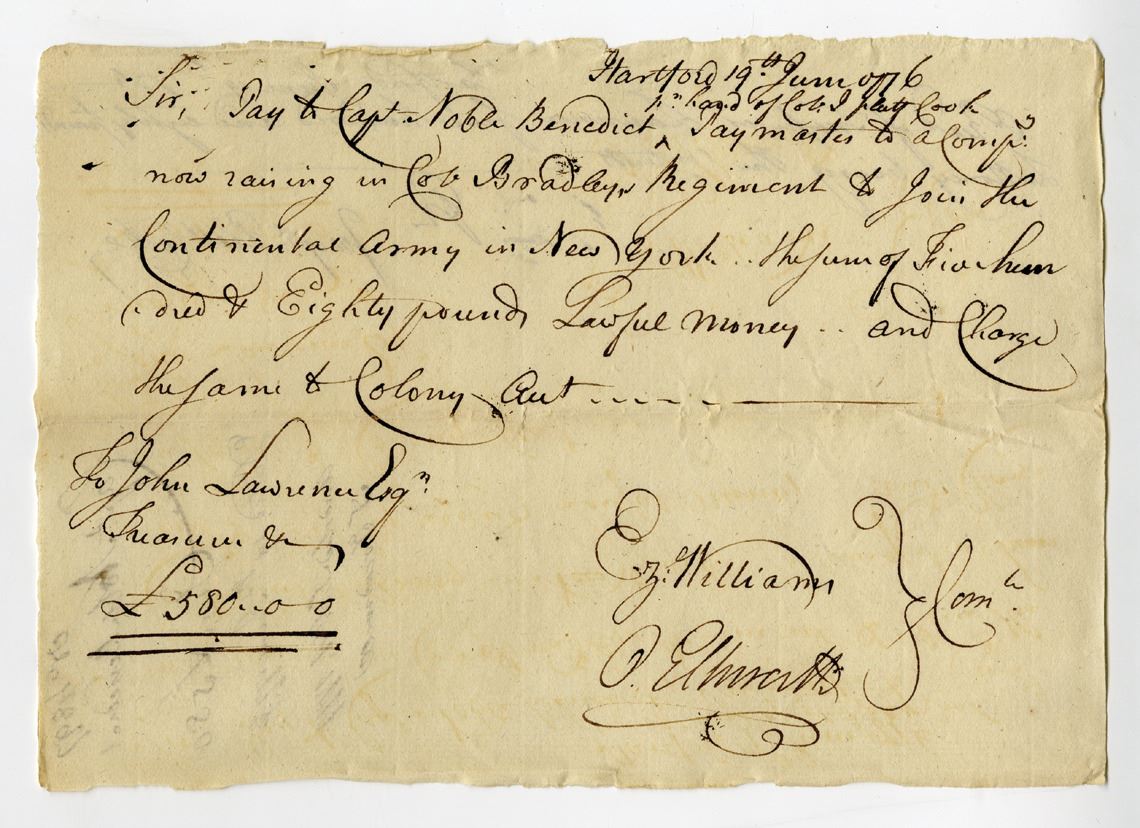 Hartford 19th. June 1776
Sir, Pay to Capt Noble Benedict ^ pr hand of Colo. J platt Cook Paymaster to a Compy.
now raising in Colo Bradleys Regiment to Join the
Continental Army in New York .. the sum of Five hun
dred & Eighty pounds Lawful Money .. and Charge
the same to Colony Acct
To John Lawrence Esqr.
Treasurer &c
£580..0 0
Ez. Williams } Comte.
O. Ellsworth